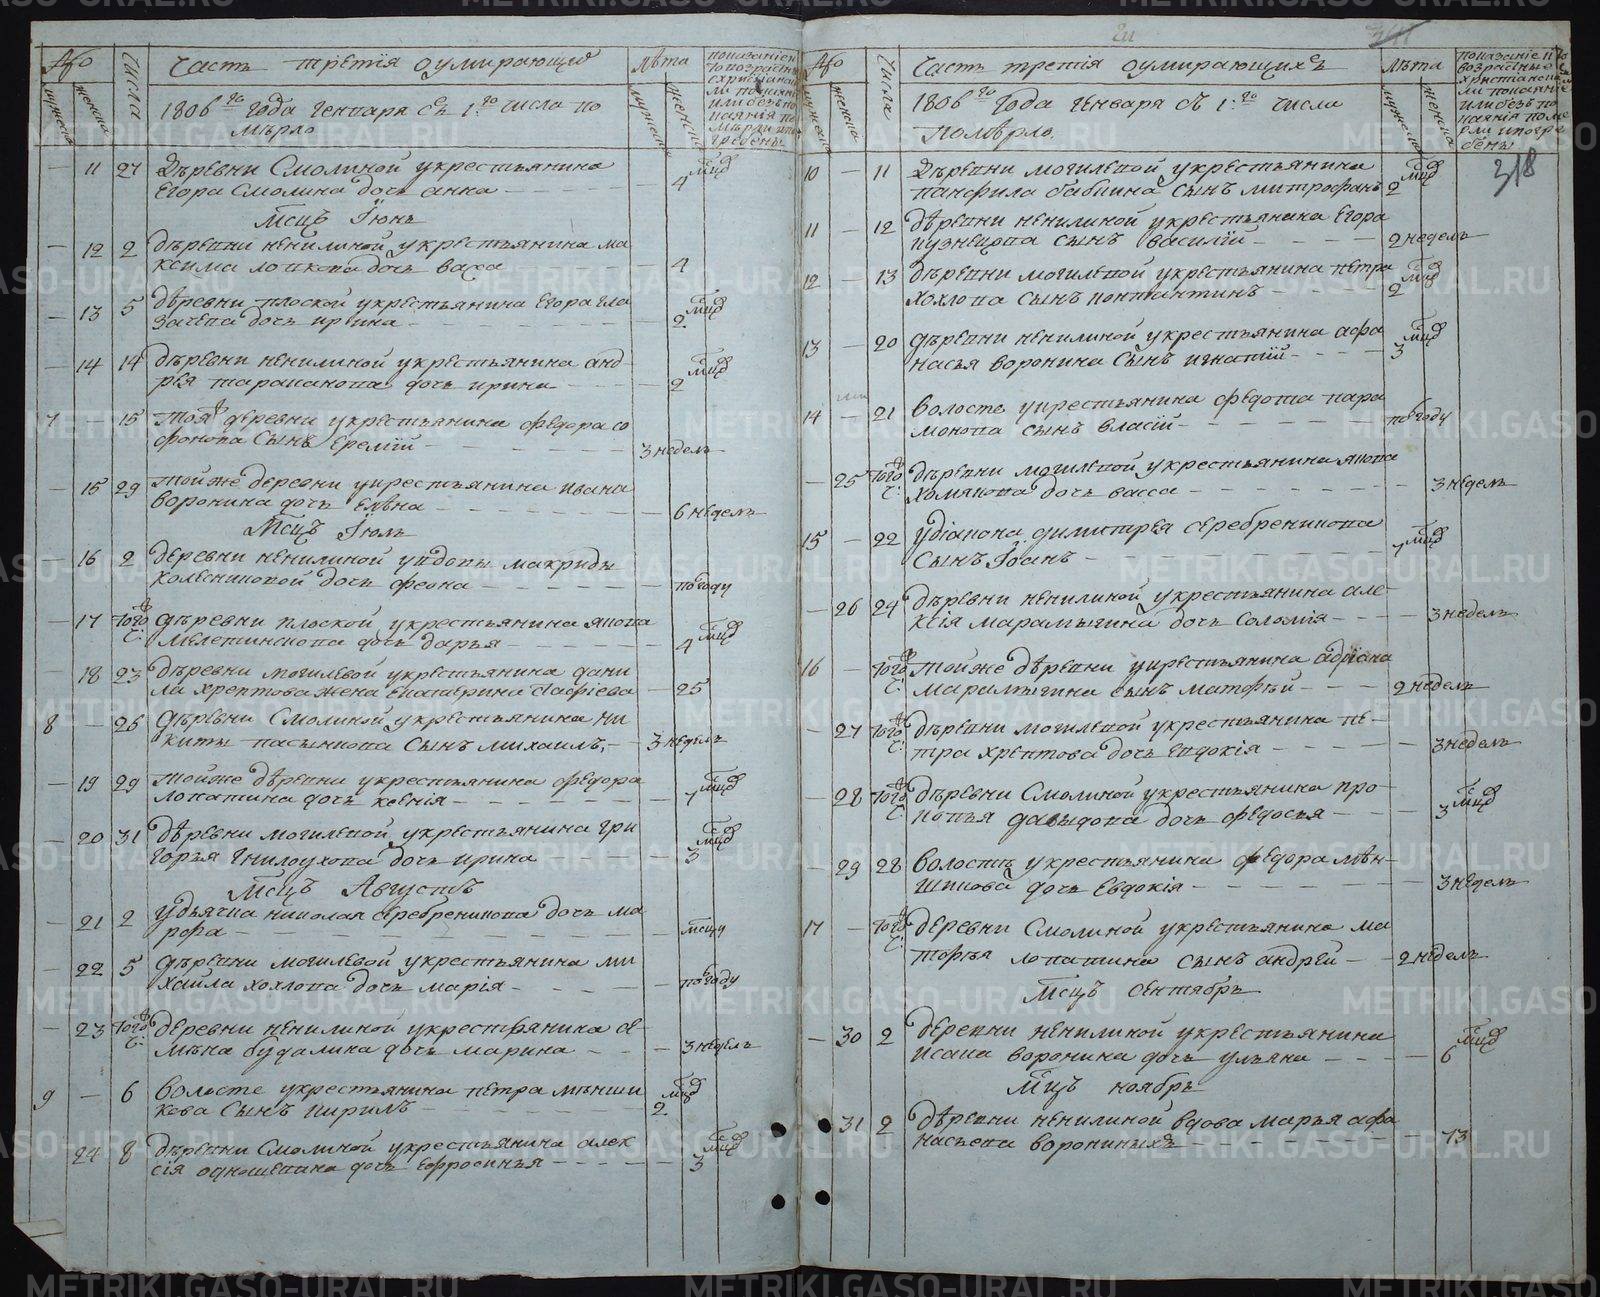 Часть третiя оумирающие
лѣта
Числа
мужеска
женска
1806го года генваря съ 1:го числа по
мѣрло
11 27 Дѣревни Смолиной укрестьянина
Егора Смолина дочь анна 4 мцд
Мсцъ Iюнь
12 2 дѣревни ненилиной укрестьянина ма
ксима лопкова дочь васа 4
13 5 дѣревни плоской укрестьянина Егора гла
зачева дочь ирина 2 мцд
14 14 дѣревни ненилиной укрестьянина анд-
рея тараканова дочь ирина 2 мцд
7 15 тояж деревни укрестьянина федора со
фонова Сынъ Еремiй 3 недель
15 29 тойже деревни укрестьянина ивана
воронина дочь Елѣна 6 недель
Мсцъ Iюль
16 2 деревни ненилиной увдовы макриды
колесниковой дочь феона погоду
17 того ч: дѣревни плоской укрестьянина якова
мелетинскова дочь дарья 4 мцд
18 23 дѣревни могилевой укрестьянина дани
ла хрептова жена Екатерина 25
8 26 дѣревни Смолиной укрестьянина ни
киты пасынкова Сынъ михаилъ 3 недель
19 29 тойже дѣревни укрестьянина федора
лопатина дочь ксенiя 1 мцд
20 31 дѣревни могилевой укрестьянина гри
горья гнилоухова дочь ирина 3 мцд
Мсцъ Августъ
21 2 удьячка николая серебреникова дочь ма
рфа мсцу
22 5 дѣревни могилевой укрестьянина ми
хайла хохлова дочь марiя погоду
23 того ч: деревни ненилиной укрестьянина се-
мѣна будалина дочь марина 3 недель
9 6 волосте укрестьянина петра мѣнши
кова Сынъ кирилъ 2 мцд
24 8 дѣревни Смолиной укрестьянина алек
сiя одношевина дочь Ефросинья 3 мцд
Часть третiя оумирающихъ
лѣта
Числа
мужеска
женска
1806го года генваря съ 1:го числа
помѣрло
318
10 11 дѣревни могилевой укрестьянина
панфила бабкина Сынъ митрофанъ 2 мцд
11 12 дѣревни ненилиной укрестьянина Егора
кузнецова сынъ василiй 2 недель
12 13 дѣревни могилевой укрестьянина петра
хохлова сынъ контантинъ 2 мцд
13 20 дѣревни ненилиной укрестьянина афа
насья воронина Сынъ игнатiй 3 мцд
14 21 волосте укрестьянина федота пара
монова сынъ власiй погоду
25 того ч: дѣревни могилевой укрестьянина якова
хомякова дочь васса 3 недель
15 22 удiакона димитрея серебреникова
Сынъ Iоанъ 1 мцд
26 24 дѣревни ненилиной укрестьянина але-
ксiя марамыгина дочь Соломiя 3 недель
16 того ч: тойже дѣревни укрестьянина адрiана
марамыгина сынъ матфѣй 2 недель
27 того ч: дѣревни могилевой укрестьянина пе-
тра хрептова дочь Евдокiя 3 недель
28 того ч: дѣревни Смолиной укрестьянина про-
копья давыдова дочь федосья 3 мцд
29 28 волостѣ укрестьянина федора мѣн-
шикова дочь Евдокiя 3 недель
17 того ч: деревни Смолиной укрестьянина ма
тофѣя лопатина сынъ андрей 2 недель
Мсцъ Сентябрь
30 2 деревни ненилиной укрестьянина
исака воронина дочь ульяна 6 мцд
Мцъ ноябрь
31 2 дѣревни ненилиной вдова марья афа
насьева ворониныхъ 73
METRIKI.GASO-URAL.RU